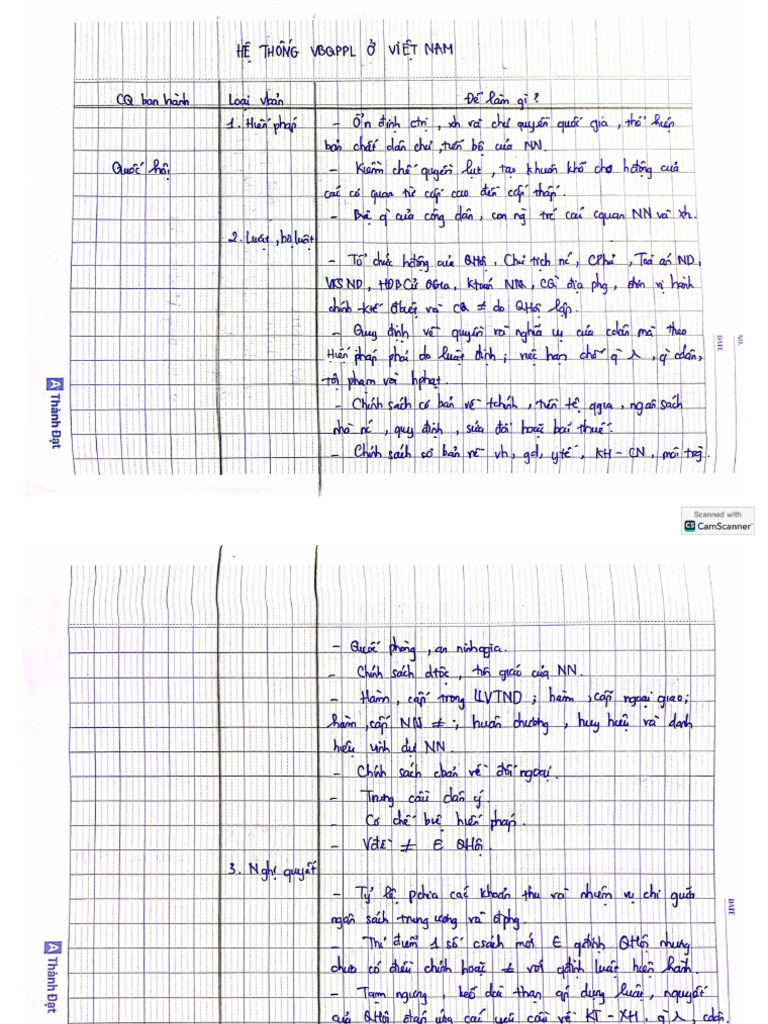 HỆ THỐNG VBQPPL Ở VIỆT NAM
CQ ban hành Loại vbản Để làm gì?
1. Hiến pháp - Ổn định ctrị, xh và chủ quyền quốc gia, thể hiện
bản chất dân chủ, tiến bộ của NN.
Quốc hội - Kiềm chế quyền lực, tạo khuôn khổ cho hđộng của
các cơ quan từ cấp cao đến cấp thấp.
- Bvệ q` của công dân, con ng trc các cquan NN và xh.
2. Luật, bộ luật
- Tổ chức hđộng của QHội, Chủ tịch nc, CPhủ, Toà án ND,
VKSND, HĐBCử QGia, Ktoán NN, CQ địa phg, đơn vị hành
chính - ktế đbiệt và CQ ≠ do QHội lập.
- Quy định về quyền và nghĩa vụ của cdân mà theo
Hiến pháp phải do luật định; việc hạn chế q` , q` cdân,
tội phạm và hphạt.
- Chính sách cơ bản về tchính, tiền tệ qgia, ngân sách
nhà nc, quy định, sửa đổi hoặc bãi thuế.
- Chính sách cơ bản về vh, gd, y tế, KH - CN, môi trg.
NO.
DATE
A Thành Đạt
Scanned with
CS CamScanner
- Quốc phòng, an ninh qgia.
- Chính sách dtộc, tôn giáo của NN.
- Hàm, cấp trong LLVTND; hàm, cấp ngoại giao;
hàm, cấp NN ≠; huân chương, huy hiệu và danh
hiệu vinh dự NN.
- Chính sách cbản về đối ngoại.
- Trưng cầu dân ý.
- Cơ chế bvệ hiến pháp.
- Vđề ≠ ∈ QHội.
3. Nghị quyết
- Tỷ lệ pchia các khoản thu và nhiệm vụ chi giữa
ngân sách trung ương và đphg.
- Thí điểm 1 số csách mới ∈ qđịnh QHội nhưng
chưa có điều chỉnh hoặc ≠ với qđịnh luật hiện hành.
- Tạm ngưng, kéo dài thời hạn áp dụng luật, nguyết
của QHội đáp ứng các yêu cầu về KT - XH, q` , cdân.
DATE
A Thành Đạt